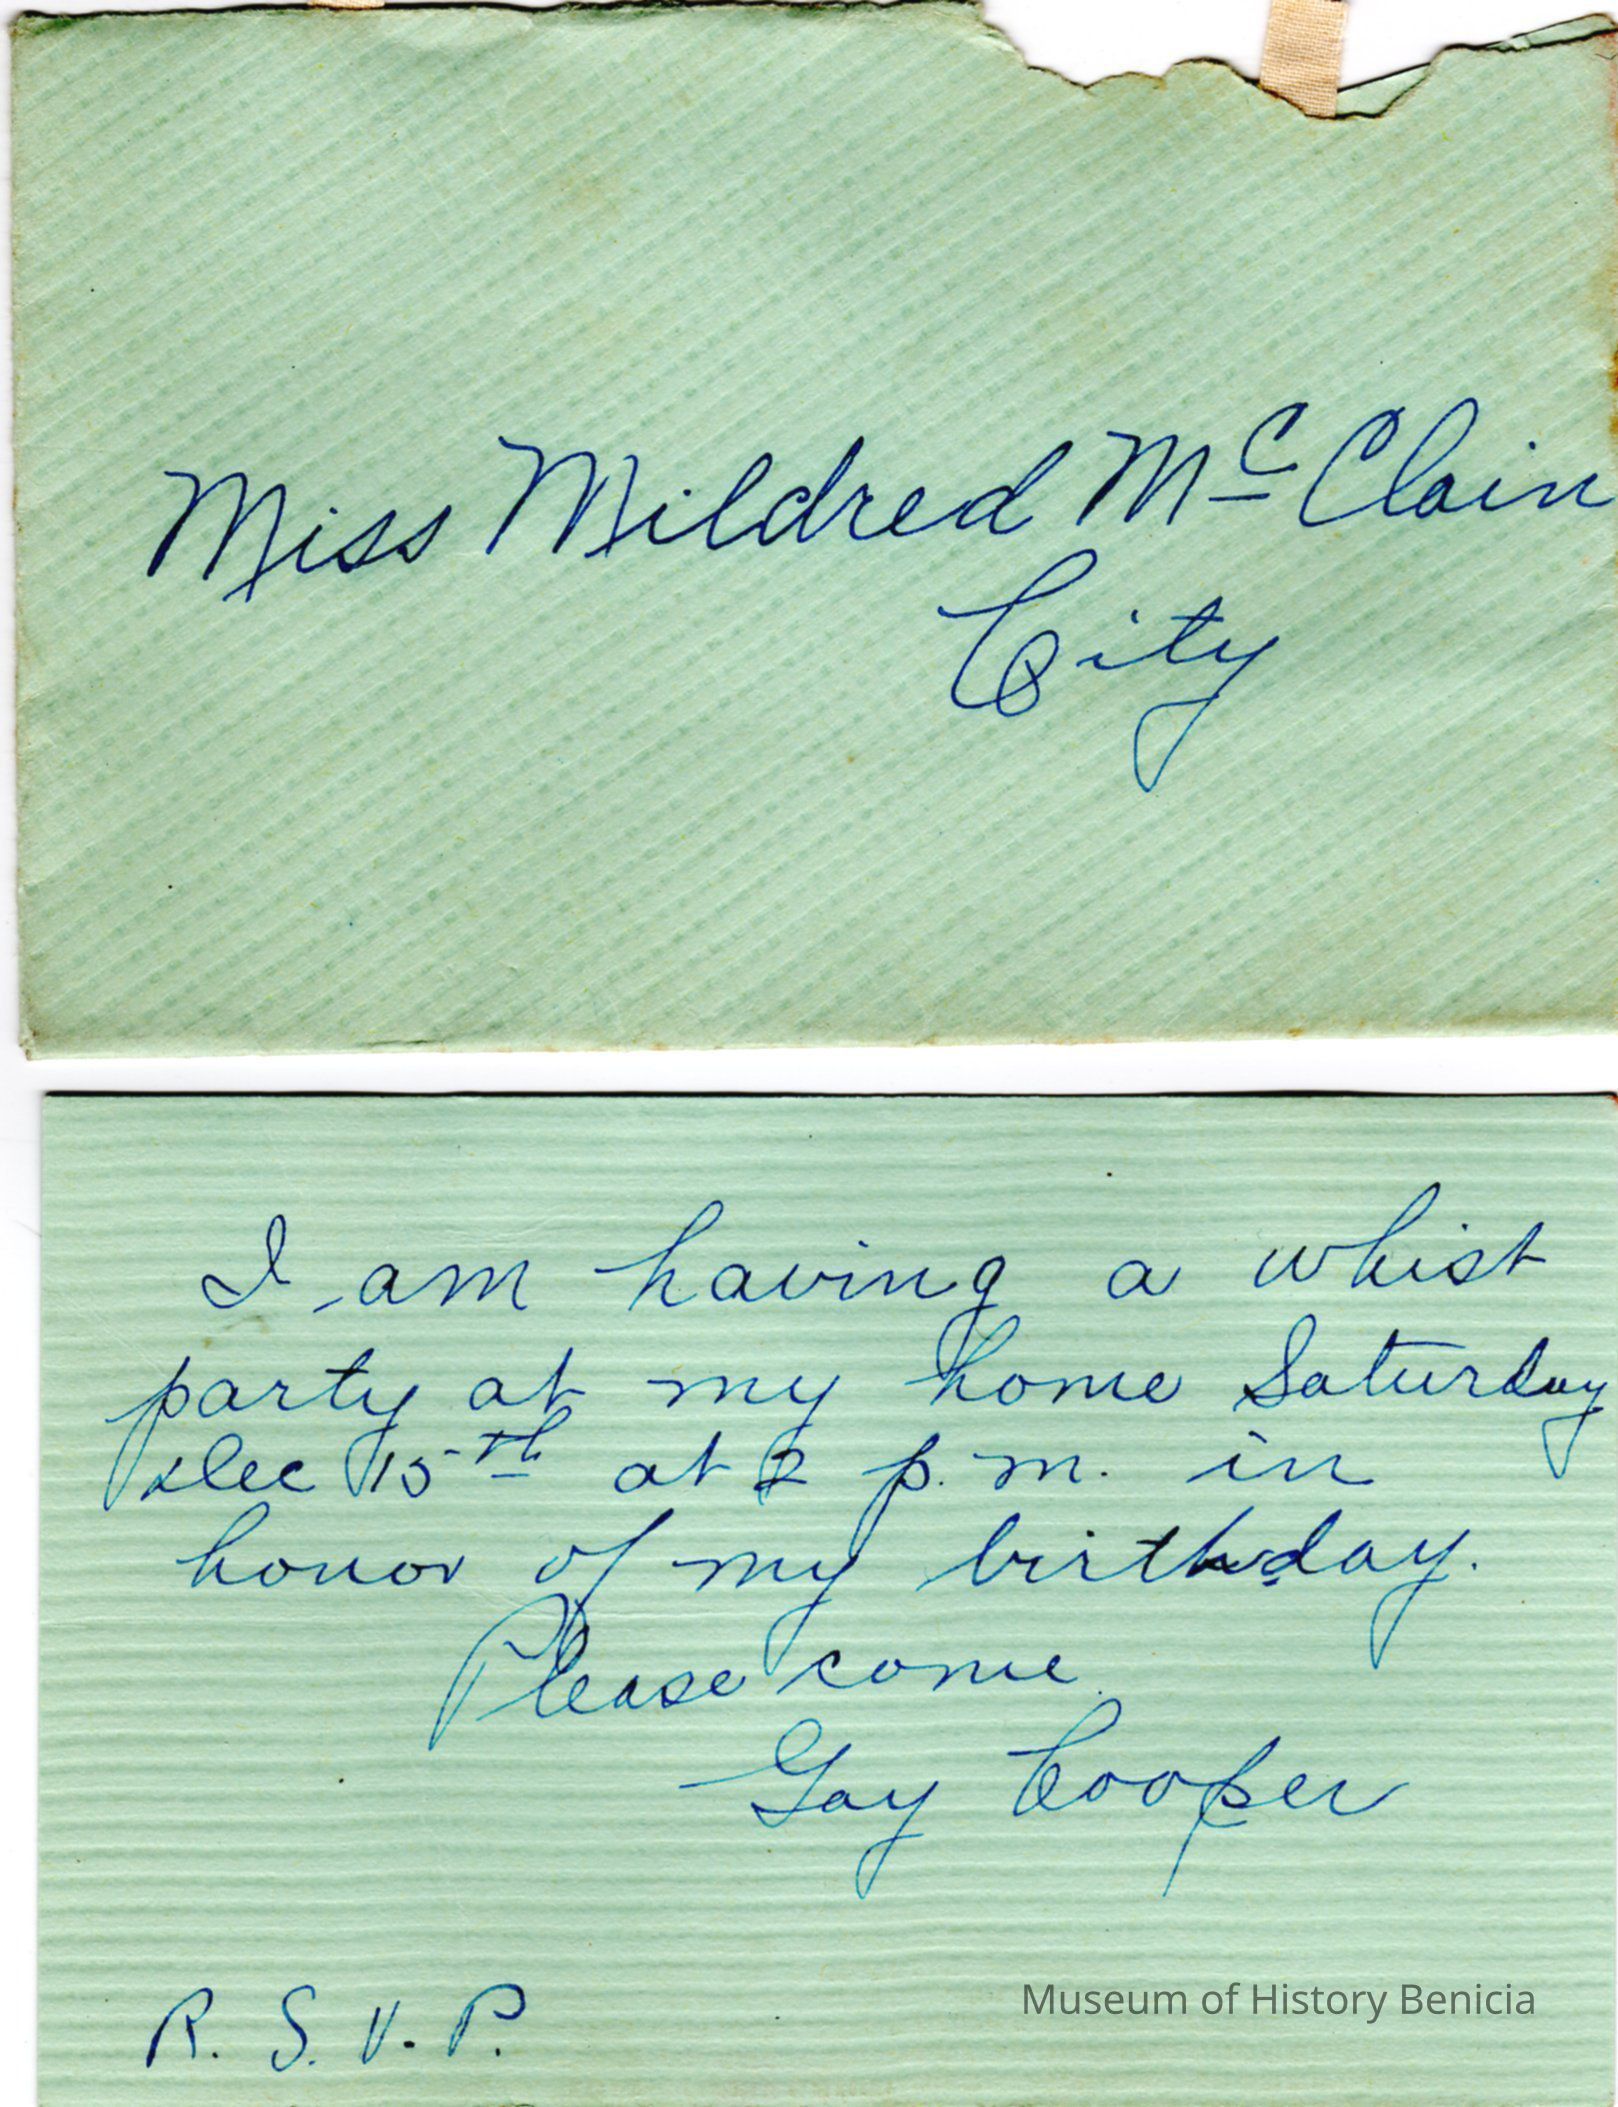 Miss Mildred McClain
City
I am having a whist
party at my home Saturday
Dec 15th at 2 p.m. in
honor of my birthday.
Please come
Gay Cooper
R. S. V. P.
Museum of History Benicia